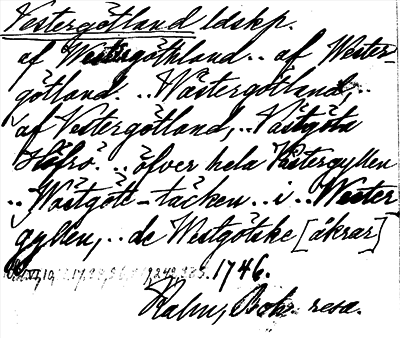 Vestergötland ldskp.
af Westergöthland.. af Wester-
götland. ..Wästergötland,..
af Vestergötland,.. Västgöta
Höfrö.. öfver hela Västergyllen
..Wästgött-täcken.. i.. Wester
gyllen,.. de Westgötske [åkrar]
1746.
Kalm, Boh. resa.